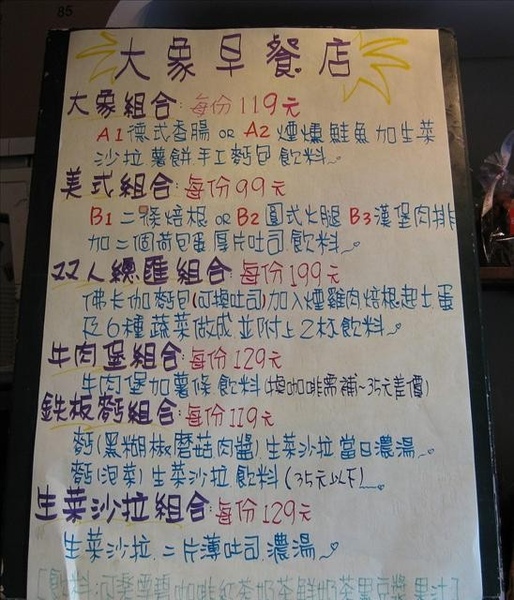 85
大象早餐店
大象組合: 每份119元
A1德式香腸 or A2 煙燻鮭魚 加生菜
沙拉薯餅手工麵包 飲料
美式組合: 每份99元
B1 二條焙根 or B2 圓式火腿 B3漢堡肉排
加二個荷包蛋厚片吐司飲料
双人總匯組合 每份199元
佛卡伽麵包(可換吐司)加入煙雞肉.焙根.起士蛋
及6種蔬菜做成並附上2杯飲料
牛肉堡組合: 每份129元
牛肉堡加薯條飲料(換咖啡需補-35元差價)
鉄板麵組合: 每份119元
麵(黑糊椒.蘑菇肉醬).生菜沙拉.當日濃湯
麵(泡菜)生菜沙拉.飲料(35元以下)
生菜沙拉組合: 每份129元
生菜沙拉.二片薄吐司.濃湯
飲料:可 雪碧 咖啡紅茶奶茶鮮奶茶 豆漿 果汁